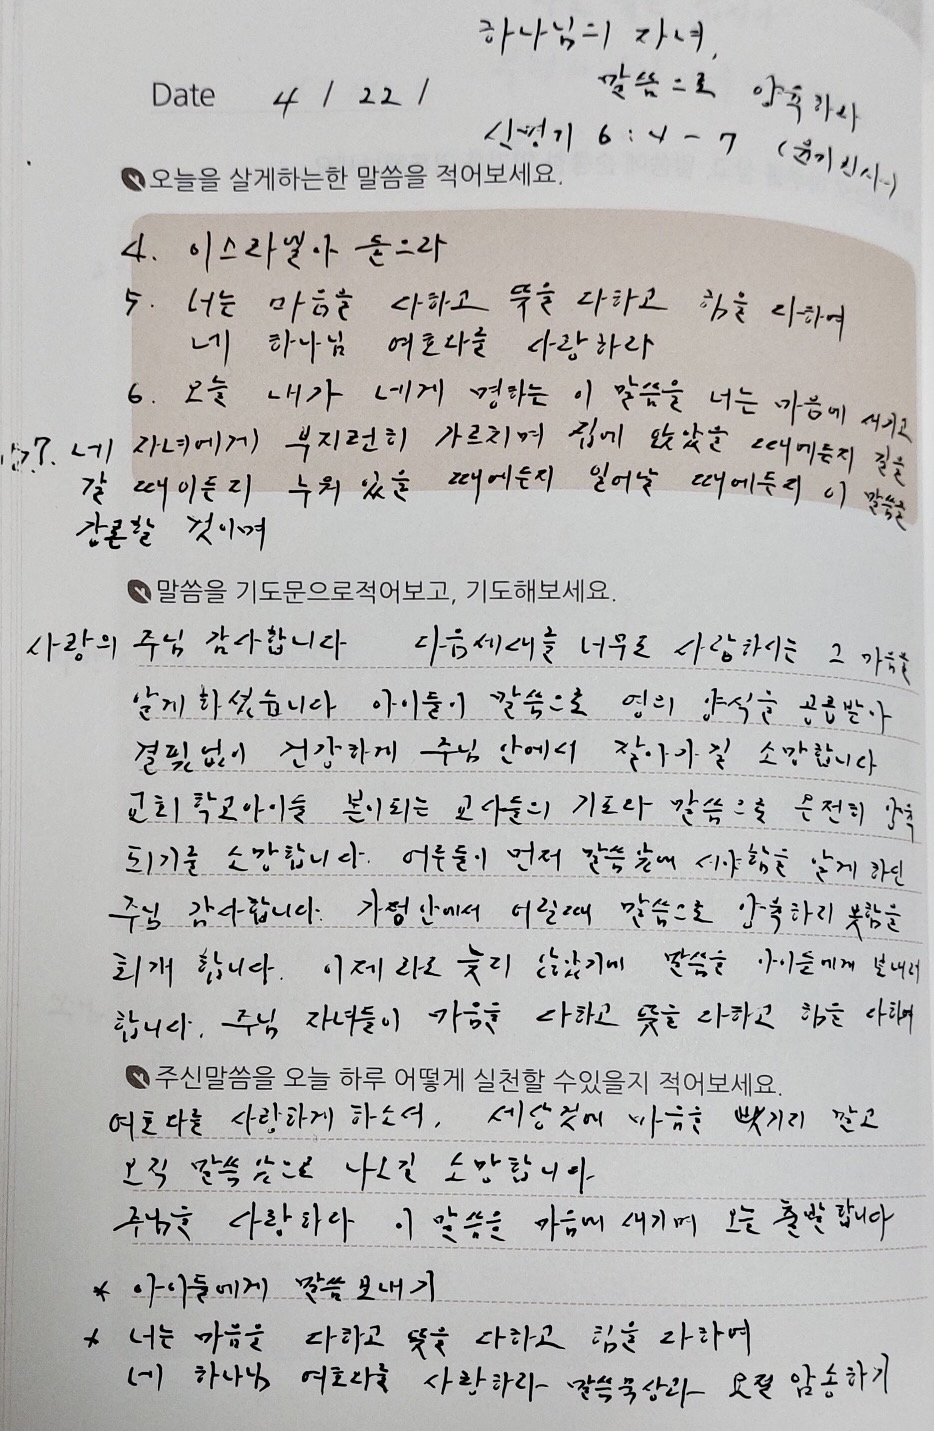 하나님의 자녀,
말씀으로 양육하라
Date 4 / 22 /
신명기 6 : 4 - 7
오늘을 살게하는한 말씀을 적어보세요.
4. 이스라엘아 들으라
5. 너는 마음을 다하고 뜻을 다하고 힘을 다하여
네 하나님 여호와를 사랑하라
6. 오늘 내가 네게 명하는 이 말씀을 너는 마음에 새기고
7. 네 자녀에게 부지런히 가르치며 집에 앉았을 때에든지 길을
갈 때이든지 누워 있을 때에든지 일어날 때에든지 이 말씀을
강론할 것이며
말씀을 기도문으로적어보고, 기도해보세요.
사랑의 주님 감사합니다 다음세대를 너무도 사랑하시는 그 마음을
알게 하셨습니다 아이들이 말씀으로 영의 양식을 공급받아
결핍없이 건강하게 주님 안에서 잘아가길 소망합니다
교회학교아이들 분이되는 교사들의 기도와 말씀으로 온전히 양육
되기를 소망합니다. 어른들이 먼저 말씀앞에 서야함을 알게 하신
주님 감사합니다. 가정안에서 어릴때 말씀으로 양육하지 못함을
회개 합니다. 이제라도 늦지 않았기에 말씀을 아이들에게 보내려
합니다. 주님 자녀들이 마음을 다하고 뜻을 다하고 힘을 다하여
주신말씀을 오늘 하루 어떻게 실천할 수있을지 적어보세요.
여호와를 사랑하게 하소서. 세상것에 마음을 뺏기지 말고
오직 말씀앞으로 나오길 소망합니다
주님을 사랑하라 이 말씀을 마음에 새기며 오늘 출발합니다
* 아이들에게 말씀보내기
* 너는 마음을 다하고 뜻을 다하고 힘을 다하여
네 하나님 여호와를 사랑하라 말씀묵상과 요절 암송하기